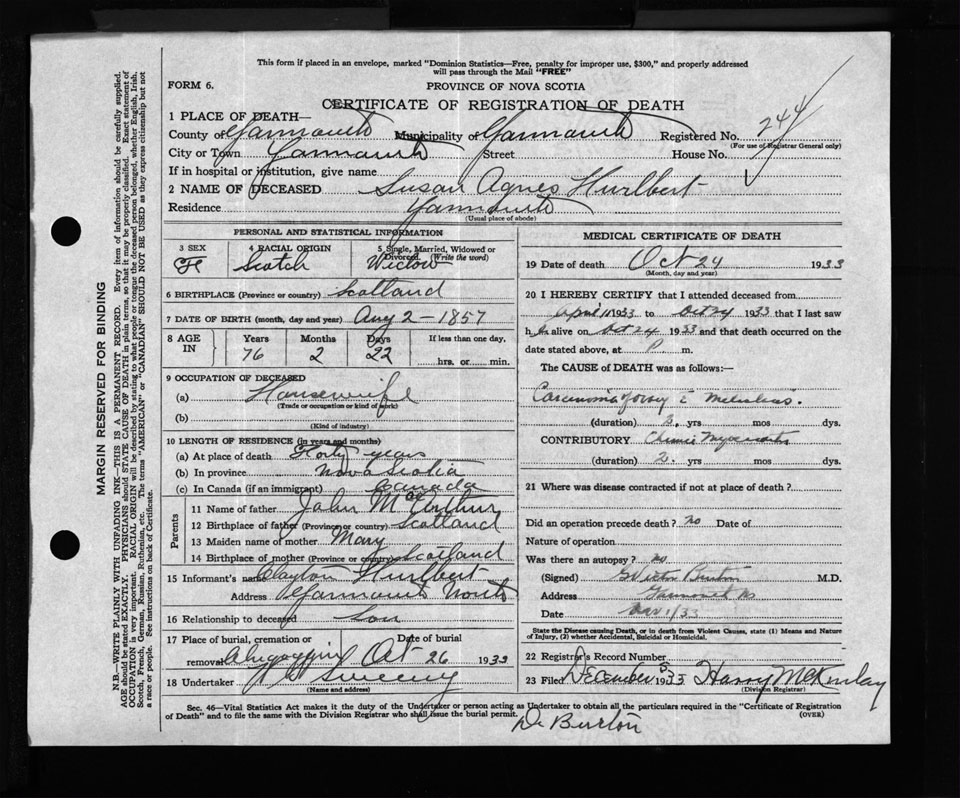 This form if placed in an envelope, marked "Dominion Statistics—Free, penalty for improper use, $300," and properly addressed
will pass through the Mail "FREE"
FORM 6.
PROVINCE OF NOVA SCOTIA
CERTIFICATE OF REGISTRATION OF DEATH
1 PLACE OF DEATH—
County of Yarmouth Municipality of Yarmouth Registered No. 244
(For use of Registrar General only)
City or Town Yarmouth Street House No.
If in hospital or institution, give name
2 NAME OF DECEASED Susan Agnes Hurlbert
Residence Yarmouth
(Usual place of abode)
PERSONAL AND STATISTICAL INFORMATION
3 SEX 4 RACIAL ORIGIN 5 Single, Married, Widowed or
Divorced. (Write the word)
F Scotch Widow
6 BIRTHPLACE (Province or country) Scotland
7 DATE OF BIRTH (month, day and year) Aug 2 - 1857
8 AGE IN Years Months Days If less than one day,
76 2 22 hrs. or min.
9 OCCUPATION OF DECEASED
(a) Housewife
(Trade or occupation or kind of work)
(b)
(Kind of industry)
10 LENGTH OF RESIDENCE (in years and months)
(a) At place of death Forty years
(b) In province Nova Scotia
(c) In Canada (if an immigrant) Canada
Parents
11 Name of father John McArthur
12 Birthplace of father (Province or country) Scotland
13 Maiden name of mother Mary
14 Birthplace of mother (Province or country) Scotland
15 Informant's name Clayton Hurlbert
Address Yarmouth North
16 Relationship to deceased Son
17 Place of burial, cremation or Date of burial
removal Oct 26 1933
18 Undertaker Sweeny
(Name and address)
MEDICAL CERTIFICATE OF DEATH
19 Date of death Oct 24 1933
(Month, day and year)
20 I HEREBY CERTIFY that I attended deceased from
April 1933 to Oct 24 1933 that I last saw
h alive on Oct 24 1933 and that death occurred on the
date stated above, at P m.
The CAUSE of DEATH was as follows:—
Carcinoma
(duration) 2 yrs mos dys.
CONTRIBUTORY Chronic Myocarditis
(duration) 2 yrs mos dys.
21 Where was disease contracted if not at place of death?
Did an operation precede death? no Date of
Nature of operation
Was there an autopsy? no
(Signed) Burton M.D.
Address Yarmouth NS
Date 1/33
State the Disease causing Death, or to death from Violent Causes, state (1) Means and Nature
of Injury, (2) whether Accidental, Suicidal or Homicidal.
22 Registrar's Record Number
23 Filed December 1933 Harry McKinlay
(Division Registrar)
Sec. 46—Vital Statistics Act makes it the duty of the Undertaker or person acting as Undertaker to obtain all the particulars required in the "Certificate of Registration
of Death" and to file the same with the Division Registrar who shall issue the burial permit. (OVER)
Dr Burton
MARGIN RESERVED FOR BINDING
N.B.—WRITE PLAINLY WITH UNFADING INK—THIS IS A PERMANENT RECORD. Every item of information should be carefully supplied.
AGE should be stated EXACTLY. PHYSICIANS should STATE CAUSE OF DEATH in plain terms, so that it may be properly classified. Exact statement of
OCCUPATION is very important. RACIAL ORIGIN will be described by stating to what people or tongue the deceased person belonged, whether English, Irish,
Scotch, French, German, Russian, Ruthenian, etc. The terms "AMERICAN" or "CANADIAN" SHOULD NOT BE USED as they express citizenship but not
a race or people. See instructions on back of Certificate.